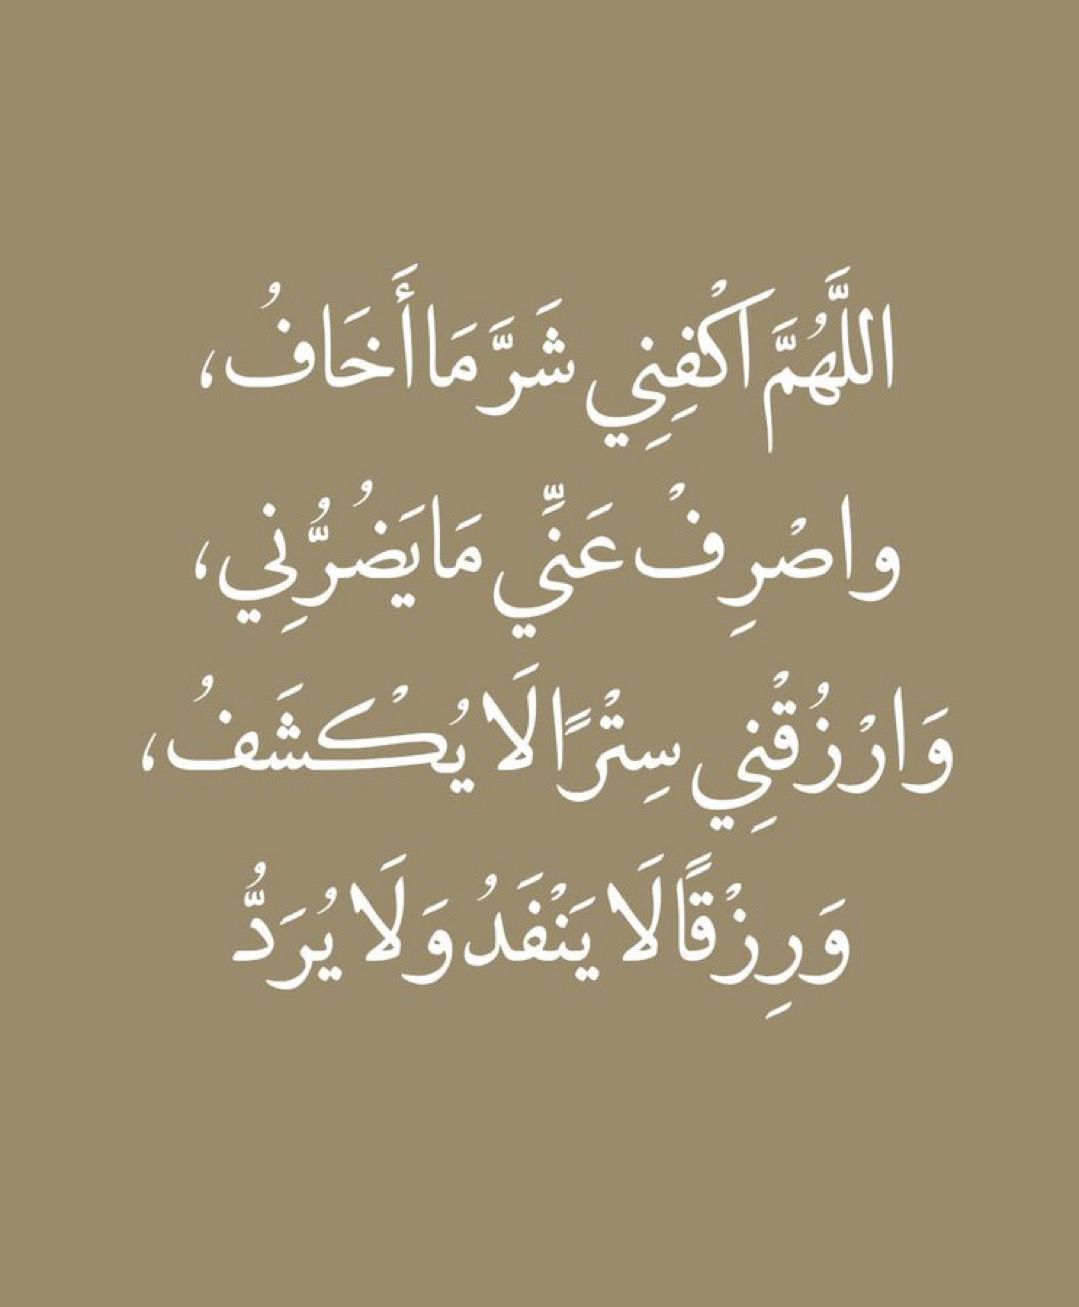 اللَّهُمَّ اكْفِنِي شَرَّ مَا أَخَافُ،
واصْرِفْ عَنِّي مَا يَضُرُّنِي،
وَارْزُقْنِي سِتْرًا لَا يُكْشَفُ،
وَرِزْقًا لَا يَنْفَدُ وَلَا يُرَدُّ